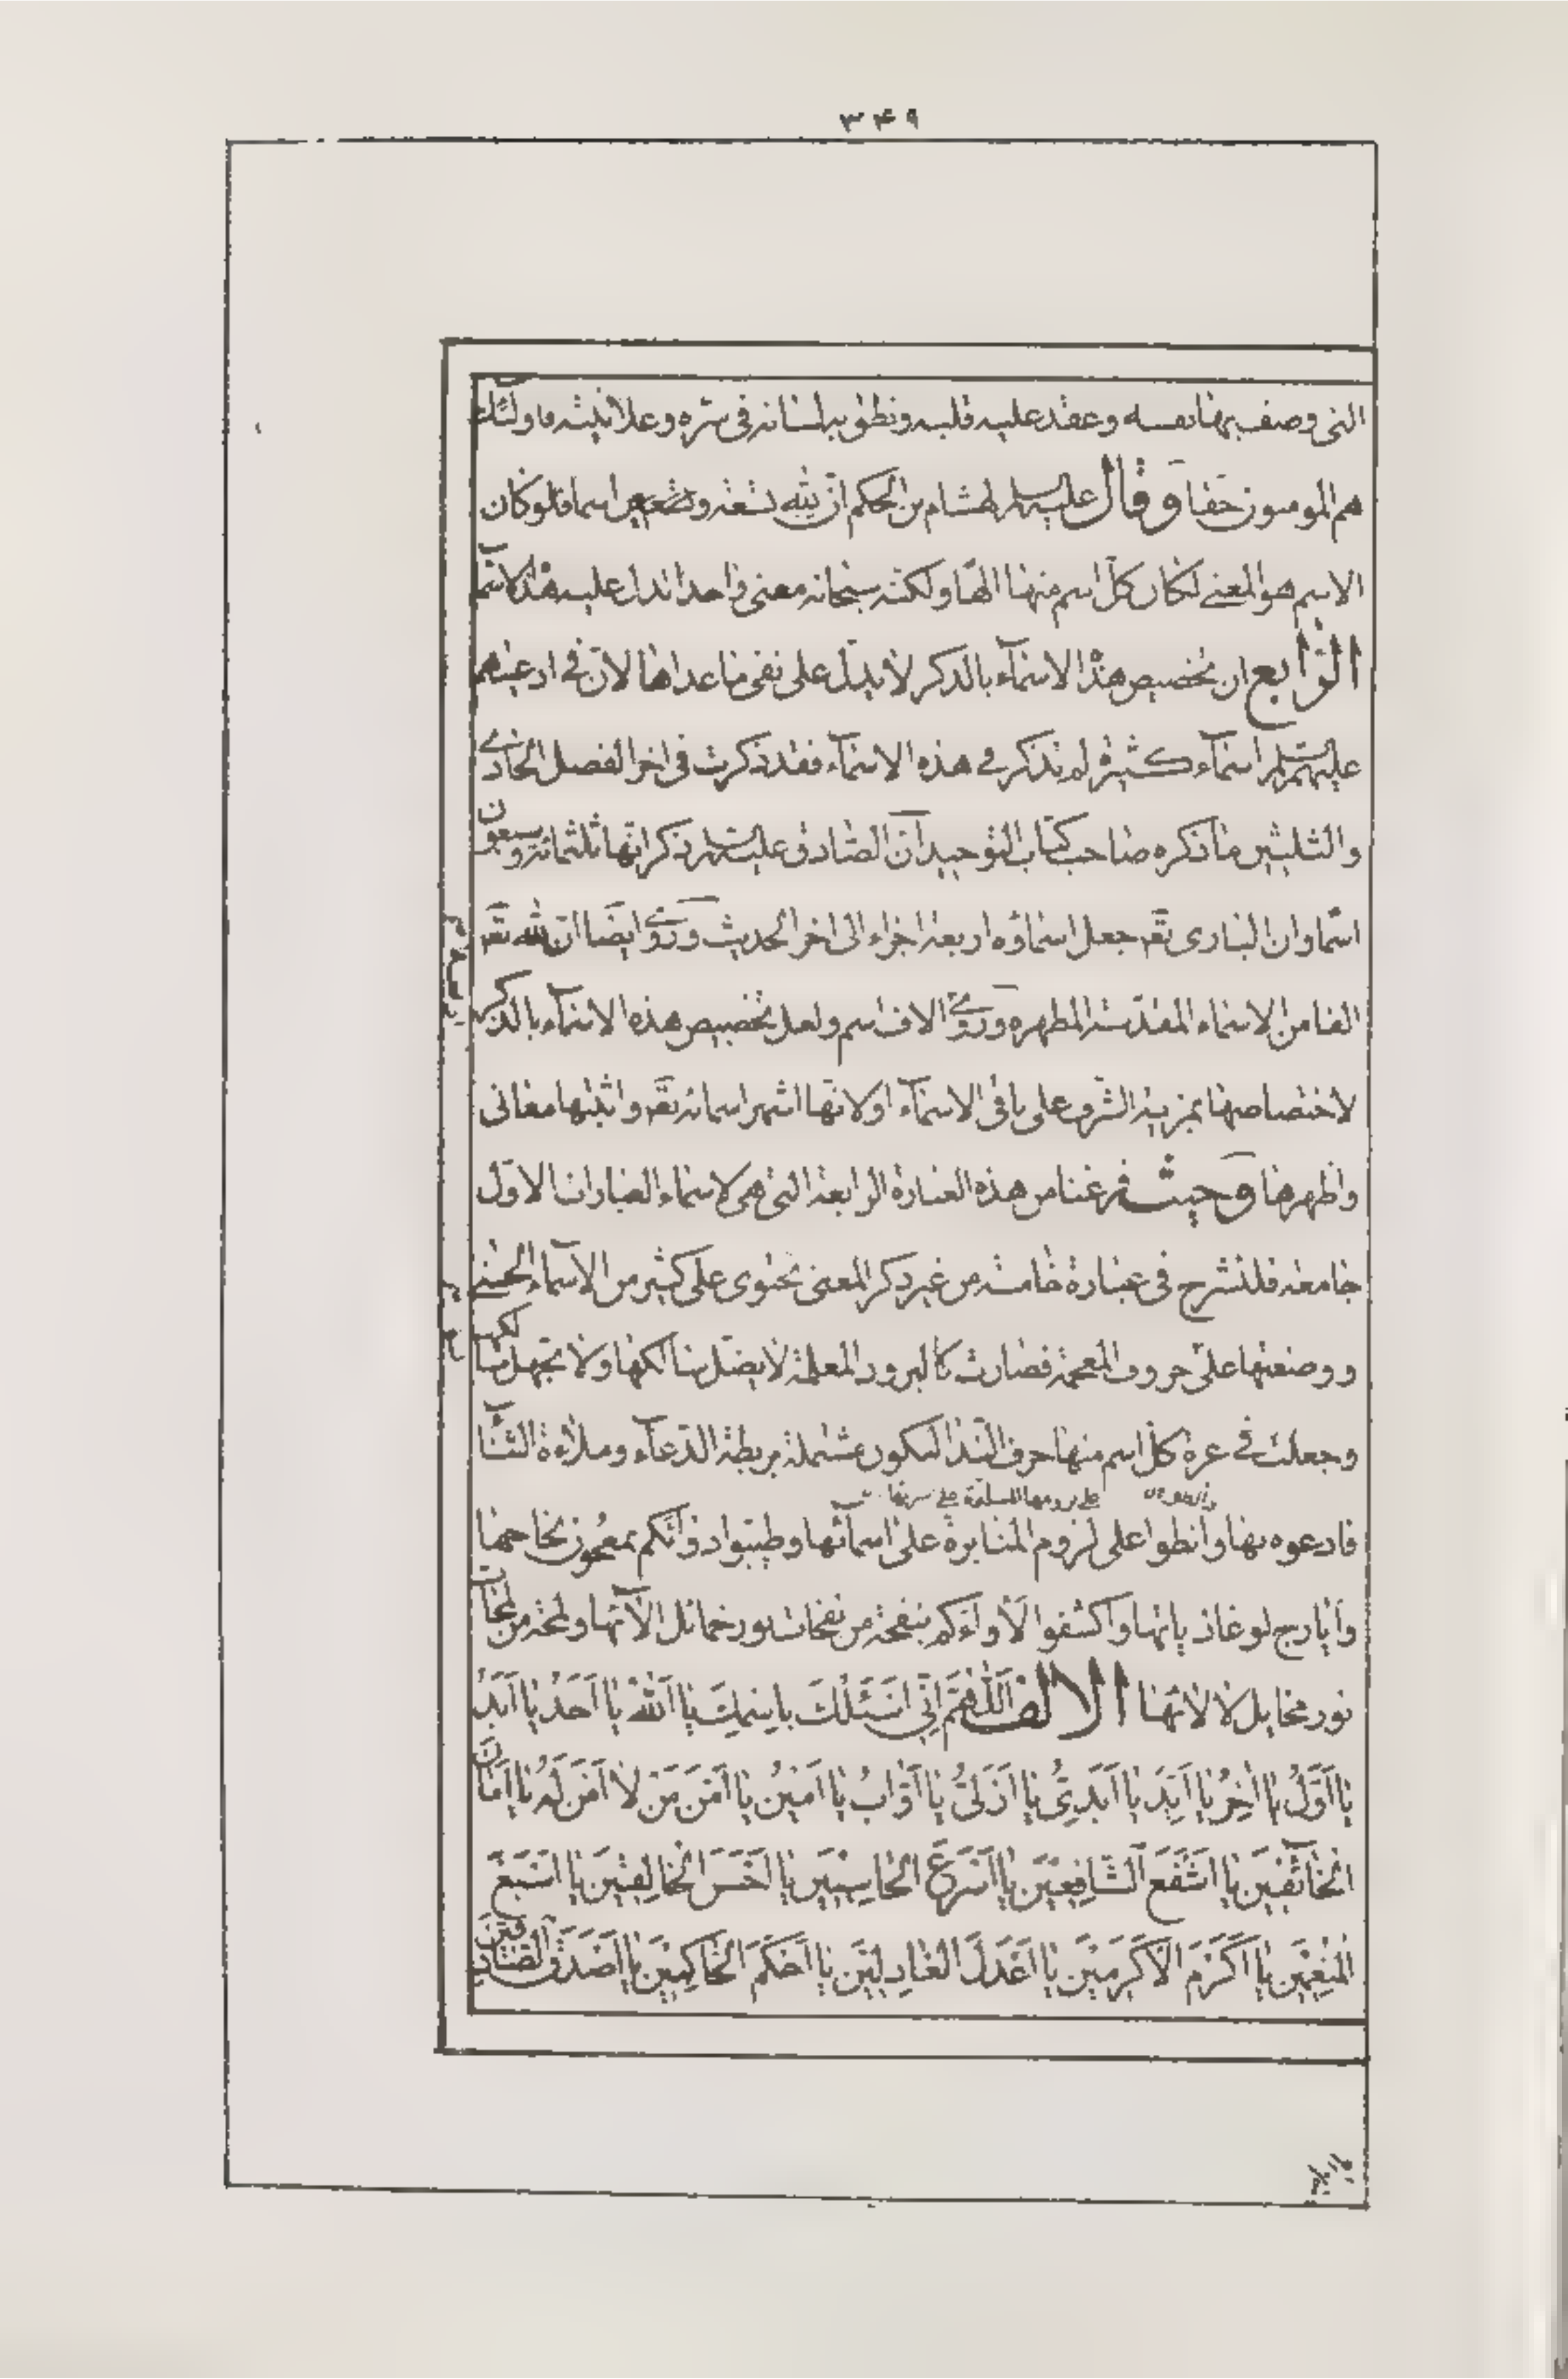 ۳۴۹
التى وصف بها نفسه وعقد عليه قلبه ونطق به لسانه فى سره وعلانيته فاولئك
هم المومنون حقا وقال عليه السلم لهشام بن الحكم ان لله تسعة وتسعين اسما فلو كان
الاسم هو المعنى لكان كل اسم منها الها ولكنه سبحانه معنى واحد اندل عليه هذه الاسما
الرابع ان تخصيص هذه الاسماء بالذكر لا يدل على نفى ما عداها لان فى ادعيتهم
عليهم السلم اسماء كثيرة لم تذكر فى هذه الاسماء فقد ذكرت فى اخر الفصل الحادى
والثلثين ما ذكره صاحب كتاب التوحيد ان الصادق عليه السلم ذكر انها ثلثمائة وسبعون
اسما وان البارى تع جعل اسماؤه اربعة اجزاء الى اخر الحديث وروى ايضا ان لله تع
الفا من الاسماء المقدسة المطهره وروى الاف اسم ولعل تخصيص هذه الاسماء بالذكر
لاختصاصها بمزية الشرف على باقى الاسماء او لانها اشهر اسمائه تع وابينها معانى
واظهرها وحيث فرغنا من هذه العبارة الرابعة التى هى لاسماء العبارات الاول
جامعة فلنشرح فى عبارة خامسة من غير ذكر المعنى تحتوى على كثير من الاسماء الحسنى
ووضعتها على حروف المعجمة فصارت كالبرود المعلمة لا يضل سالكها ولا تجهل مسالكها
وجعلت فى غرة كل اسم منها حرف الندا لتكون مشتملة بريطة الدعاء وملاءة الثنا
فادعوه بها وانطوا على لزوم المثابرة على اسمائها وطيبوا دواتكم بمعجون نجاحها
وايارج لوغاذياتها واكشفوا لاواءكم بنفحة من نفحات نور خمائل الائها ولمحة من لمحات
نور مخايل لالائها الالف اَللّٰهُمَّ اِنّى اَسْئَلُكَ بِاسْمِكَ يا اَللّٰهُ يا اَحَدُ يا اَبَدُ
يا اَوَّلُ يا اٰخِرُ يا اَبَدَ يا اَبَدِىُّ يا اَزَلِىُّ يا اَوّابُ يا اَمينُ يا اَمْنَ مَنْ لا اَمْنَ لَهُ يا اَمانَ
الْخائِفينَ يا اَشْفَعَ الشّافِعينَ يا اَسْرَعَ الْحاسِبينَ يا اَحْسَنَ الْخالِقينَ يا اَسْبَغَ
الْمُنْعِمينَ يا اَكْرَمَ الْاَكْرَمينَ يا اَعْدَلَ الْعادِلينَ يا اَحْكَمَ الْحاكِمينَ يا اَصْدَقَ الصّادِقينَ